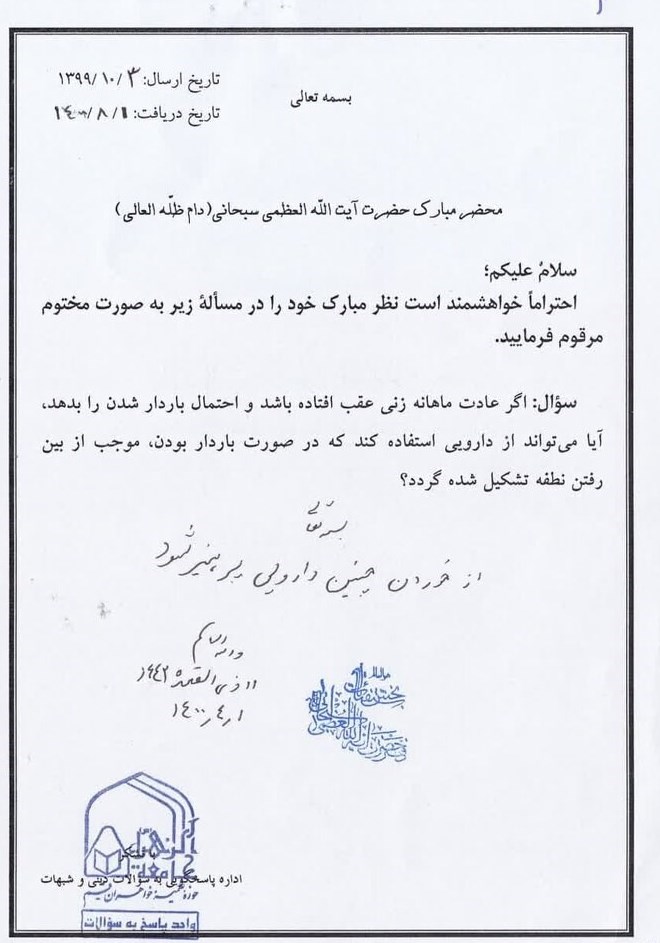 تاریخ ارسال: ۱۳۹۹/۱۰/۳
بسمه تعالی
تاریخ دریافت: ۱۴۰۰/۸/۱
محضر مبارک حضرت آیت اللّه العظمی سبحانی(دام ظلّه العالی)
سلامٌ علیکم؛
احتراماً خواهشمند است نظر مبارک خود را در مسألهٔ زیر به صورت مختوم
مرقوم فرمایید.
سؤال: اگر عادت ماهانه زنی عقب افتاده باشد و احتمال باردار شدن را بدهد،
آیا می‌تواند از دارویی استفاده کند که در صورت باردار بودن، موجب از بین
رفتن نطفه تشکیل شده گردد؟
بسمه تعالی
از خوردن چنین دارویی پرهیز شود
والسلام
۱۱ ذی القعدة ۱۴۴۲
۱ر۴ر۱۴۰۰
با تشکر
اداره پاسخگویی به سؤالات دینی و شبهات
واحد پاسخ به سؤالات